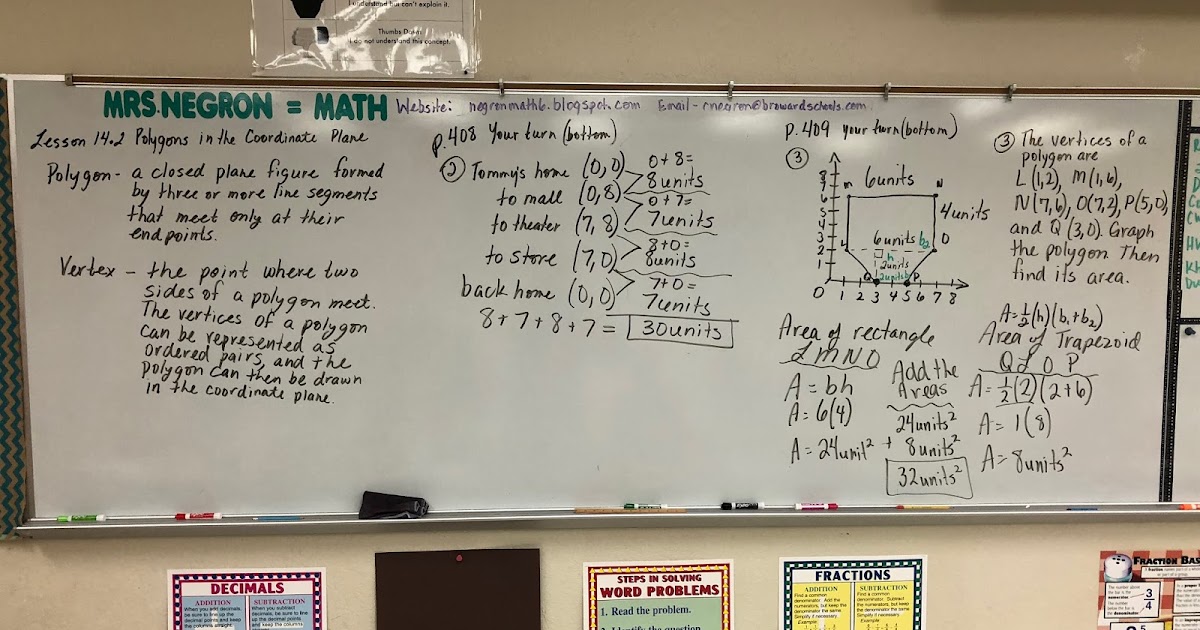 I understand but can't explain it.
Thumbs Down
I do not understand this concept.
MRS. NEGRON = MATH Website: negronmath6.blogspot.com Email - cnegron@browardschools.com
Lesson 14.2 Polygons in the Coordinate Plane
Polygon - a closed plane figure formed
by three or more line segments
that meet only at their
endpoints.
Vertex - the point where two
sides of a polygon meet.
The vertices of a polygon
can be represented as
ordered pairs, and the
polygon can then be drawn
in the coordinate plane.
p.408 Your turn (bottom)
② Tommy's home (0,0)
to mall (0,8)
to theater (7,8)
to store (7,0)
back home (0,0)
0+8=
8units
0+7=
7units
8+0=
8units
7+0=
7units
8+7+8+7= 30units
p.409 your turn (bottom)
③
8
7
6
5
4
3
2
1
0 1 2 3 4 5 6 7 8
M 6units N
4units
L 6units b₂ O
h
2units
Q 2units b₁ P
Area of rectangle
LMNO
A = bh
A = 6(4)
A = 24unit²
Add the
Areas
24units²
+ 8units²
32units²
③ The vertices of a
polygon are
L(1,2), M(1,6),
N(7,6), O(7,2), P(5,0),
and Q(3,0). Graph
the polygon. Then
find its area.
A=½(h)(b₁+b₂)
Area of Trapezoid
QLOP
A=½(2)(2+6)
A= 1(8)
A= 8units²
DECIMALS
ADDITION
When you add decimals,
be sure to line up
the decimal points
and keep the
columns straight.
SUBTRACTION
When you subtract
decimals, be sure to line up
the decimal points
and keep the columns
STEPS IN SOLVING
WORD PROBLEMS
1. Read the problem.
2. Identify the question
FRACTIONS
ADDITION
Find a common
denominator. Add the
numerators, but keep
the denominator the
same. Simplify
if necessary.
Example:
SUBTRACTION
Find a common
denominator. Subtract
the numerators, but keep
the denominator the same.
Simplify if necessary.
Example:
FRACTION BAS
3
4